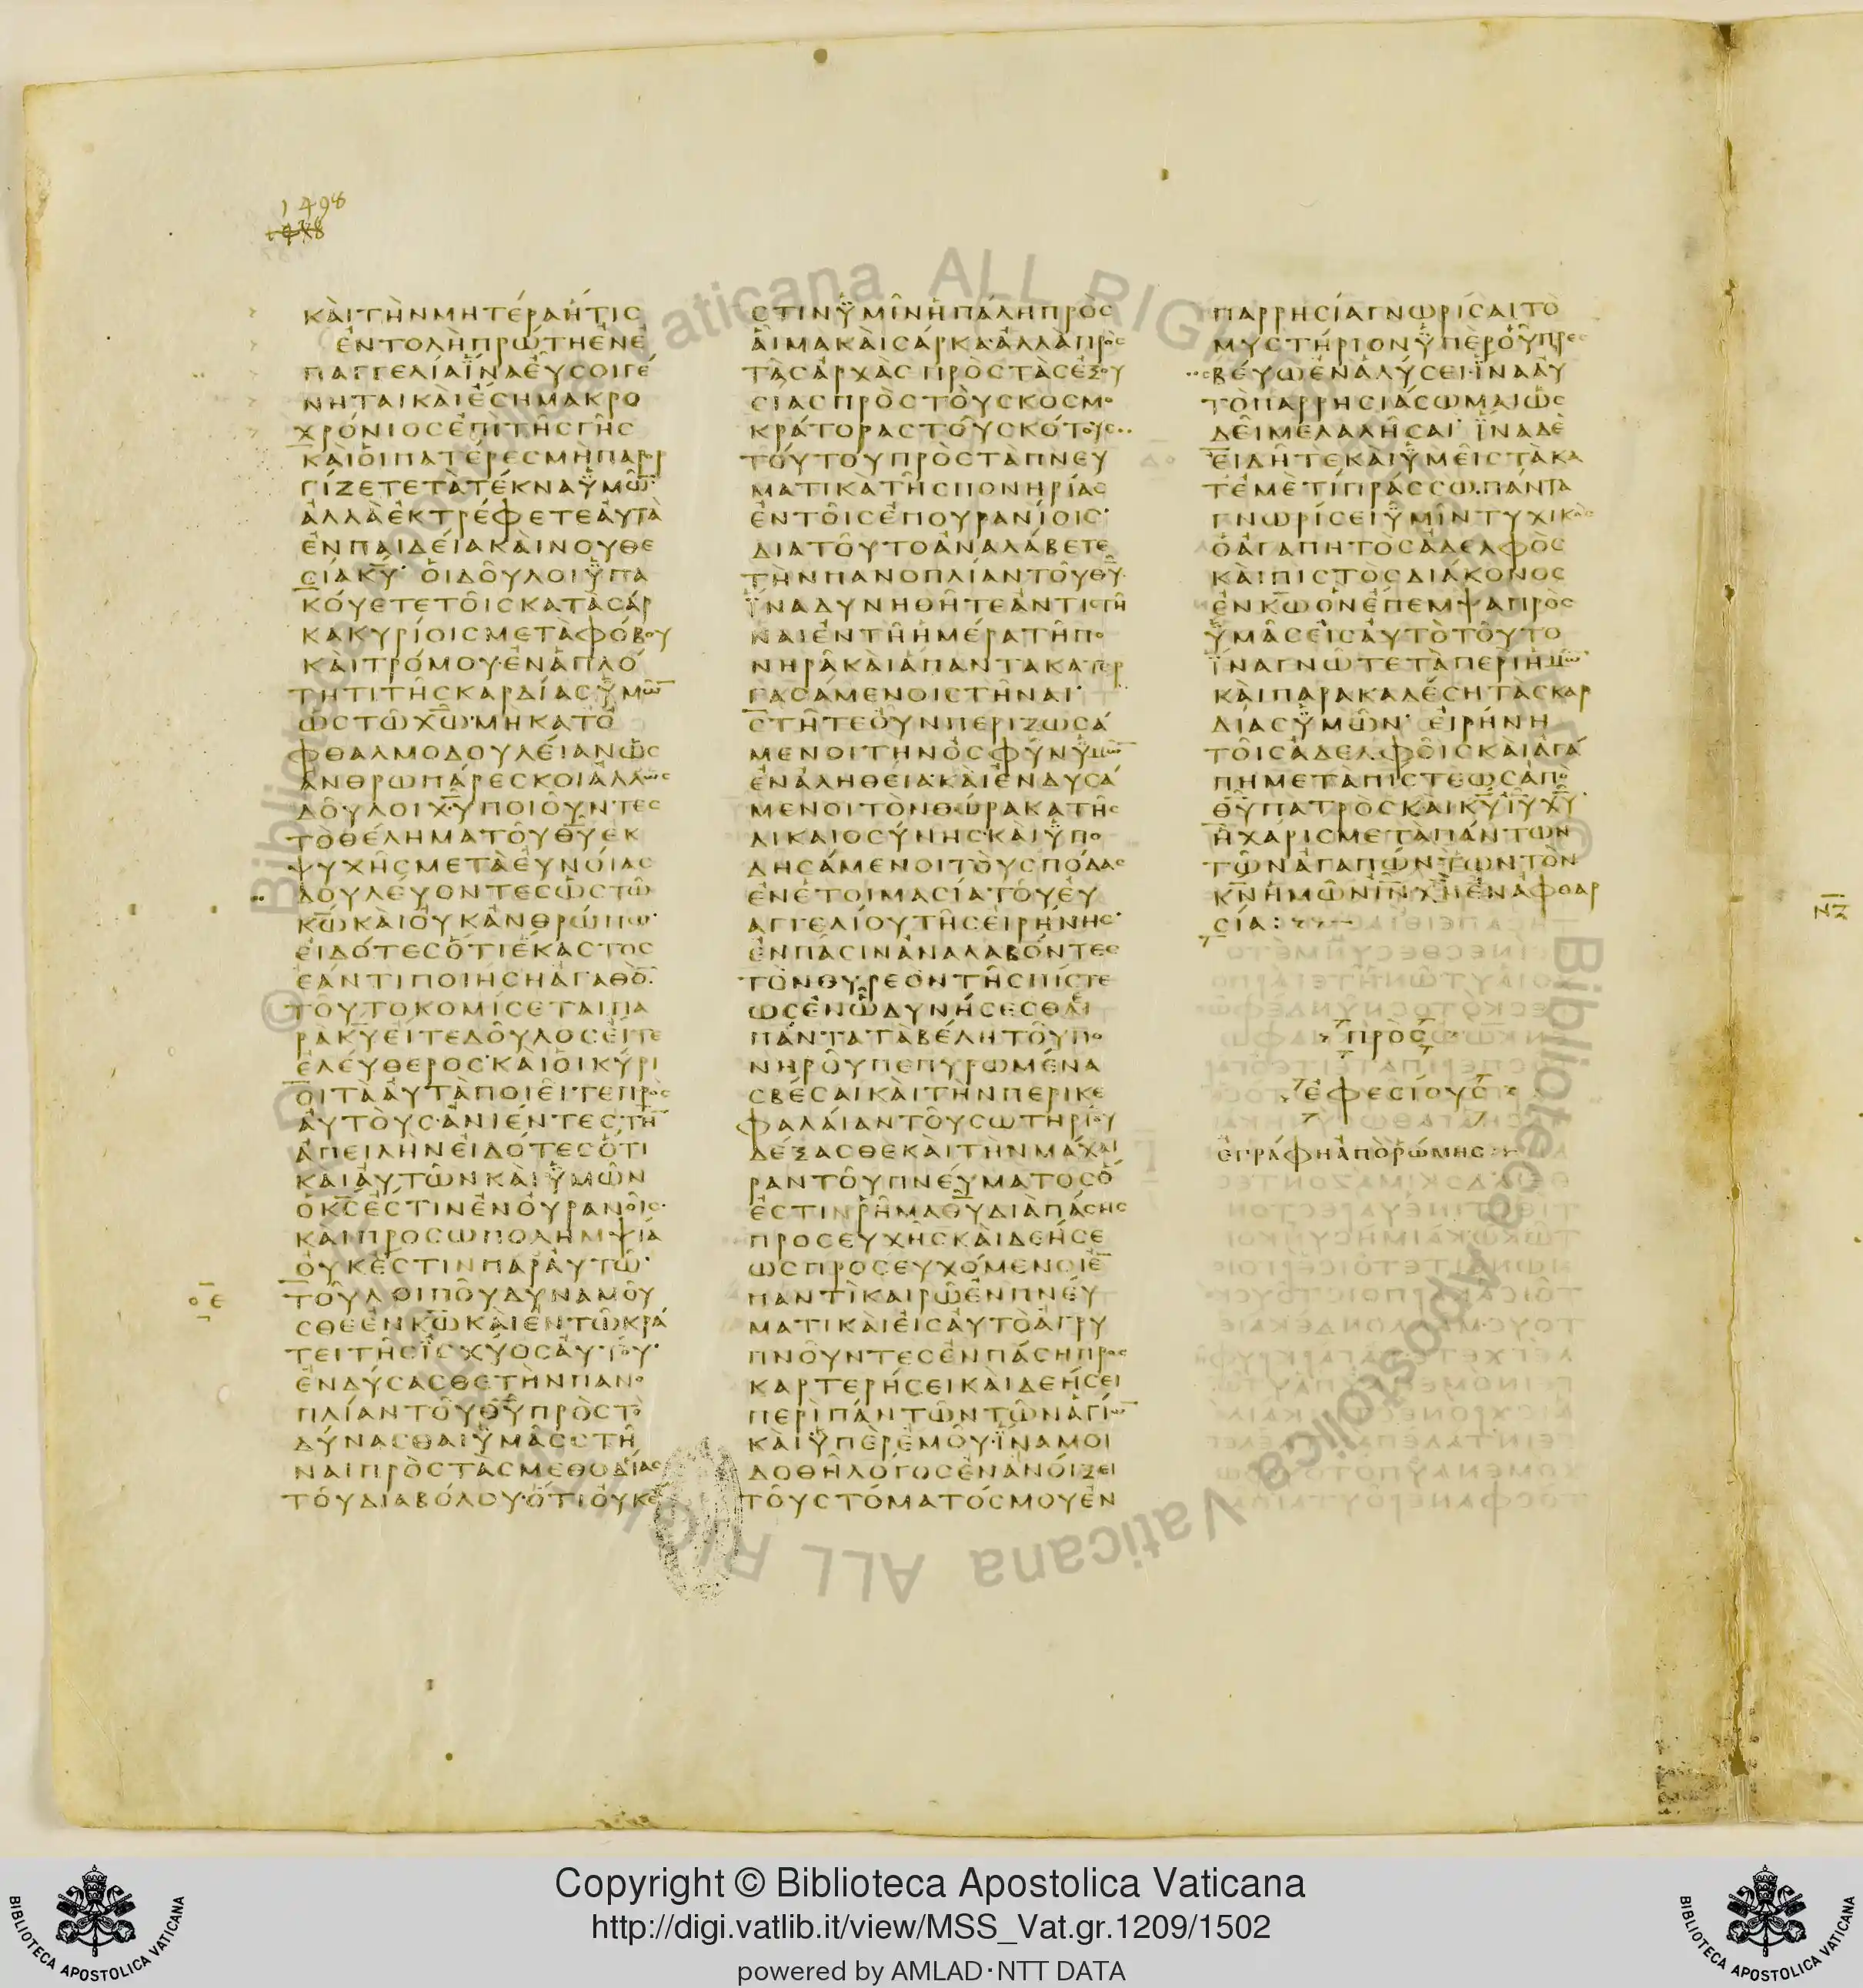 1498
ΚΑΙΤΗΝΜΗΤΕΡΑΗΤΙΣ
ΕΝΤΟΛΗΠΡΩΤΗΕΝΕ
ΠΑΓΓΕΛΙΑΪΝΑΕΥΣΟΙΓΕ
ΝΗΤΑΙΚΑΙΕΣΗΜΑΚΡΟ
ΧΡΟΝΙΟΣΕΠΙΤΗΣΓΗΣ
ΚΑΙΟΙΠΑΤΕΡΕΣΜΗΠΑΡΟΡ
ΓΙΖΕΤΕΤΑΤΕΚΝΑΫΜΩ̅
ΑΛΛΑΕΚΤΡΕΦΕΤΕΑΥΤΑ
ΕΝΠΑΙΔΕΙΑΚΑΙΝΟΥΘΕ
ΣΙΑΚ̅Υ̅· ΟΙΔΟΥΛΟΙΫΠΑ
ΚΟΥΕΤΕΤΟΙΣΚΑΤΑΣΑΡ
ΚΑΚΥΡΙΟΙΣΜΕΤΑΦΟΒΟΥ
ΚΑΙΤΡΟΜΟΥ·ΕΝΑΠΛΟ
ΤΗΤΙΤΗΣΚΑΡΔΙΑΣΫΜΩ̅
ΩΣΤΩΧ̅Ω̅·ΜΗΚΑΤΟ
ΦΘΑΛΜΟΔΟΥΛΕΙΑΝΩΣ
ΑΝΘΡΩΠΑΡΕΣΚΟΙΑΛΛΩΣ
ΔΟΥΛΟΙΧ̅Υ̅ΠΟΙΟΥΝΤΕΣ
ΤΟΘΕΛΗΜΑΤΟΥΘ̅Υ̅ΕΚ
ΨΥΧΗΣΜΕΤΑΕΥΝΟΙΑΣ
ΔΟΥΛΕΥΟΝΤΕΣΩΣΤΩ
Κ̅Ω̅ΚΑΙΟΥΚΑΝΘΡΩΠΩ·
ΕΙΔΟΤΕΣΟΤΙΕΚΑΣΤΟΣ
ΕΑΝΤΙΠΟΙΗΣΗΑΓΑΘΟ̅·
ΤΟΥΤΟΚΟΜΙΣΕΤΑΙΠΑ
ΡΑΚ̅Υ̅ΕΙΤΕΔΟΥΛΟΣΕΙΤΕ
ΕΛΕΥΘΕΡΟΣ·ΚΑΙΟΙΚΥΡΙ
ΟΙΤΑΑΥΤΑΠΟΙΕΙΤΕΠΡΟΣ
ΑΥΤΟΥΣ·ΑΝΙΕΝΤΕΣΤΗ̅
ΑΠΕΙΛΗΝΕΙΔΟΤΕΣΟΤΙ
ΚΑΙΑΥΤΩΝΚΑΙΫΜΩΝ
ΟΚ̅Σ̅ΕΣΤΙΝΕΝΟΥΡΑΝΟΙΣ·
ΚΑΙΠΡΟΣΩΠΟΛΗΜΨΙΑ
ΟΥΚΕΣΤΙΝΠΑΡΑΥΤΩ·
Ο̅Ε̅
ΤΟΥΛΟΙΠΟΥΔΥΝΑΜΟΥ
ΣΘΕΕΝΚ̅Ω̅ΚΑΙΕΝΤΩΚΡΑ
ΤΕΙΤΗΣΪΣΧΥΟΣΑΥΤΟΥ·
ΕΝΔΥΣΑΣΘΕΤΗΝΠΑΝΟ
ΠΛΙΑΝΤΟΥΘ̅Υ̅ΠΡΟΣΤΟ
ΔΥΝΑΣΘΑΙΫΜΑΣΣΤΗ
ΝΑΙΠΡΟΣΤΑΣΜΕΘΟΔΙΑΣ
ΤΟΥΔΙΑΒΟΛΟΥ·ΟΤΙΟΥΚΕ
ΣΤΙΝΫΜΙΝΗΠΑΛΗΠΡΟΣ
ΑΙΜΑΚΑΙΣΑΡΚΑ·ΑΛΛΑΠΡΟΣ
ΤΑΣΑΡΧΑΣ ΠΡΟΣΤΑΣΕΞΟΥ
ΣΙΑΣΠΡΟΣΤΟΥΣΚΟΣΜΟ
ΚΡΑΤΟΡΑΣΤΟΥΣΚΟΤΟΥΣ
ΤΟΥΤΟΥΠΡΟΣΤΑΠΝΕΥ
ΜΑΤΙΚΑΤΗΣΠΟΝΗΡΙΑΣ
ΕΝΤΟΙΣΕΠΟΥΡΑΝΙΟΙΣ·
ΔΙΑΤΟΥΤΟΑΝΑΛΑΒΕΤΕ
ΤΗΝΠΑΝΟΠΛΙΑΝΤΟΥΘ̅Υ̅·
ΪΝΑΔΥΝΗΘΗΤΕΑΝΤΙΣΤΗ
ΝΑΙΕΝΤΗΗΜΕΡΑΤΗΠΟ
ΝΗΡΑΚΑΙΑΠΑΝΤΑΚΑΤΕΡ
ΓΑΣΑΜΕΝΟΙΣΤΗΝΑΙ·
ΣΤΗΤΕΟΥΝΠΕΡΙΖΩΣΑ
ΜΕΝΟΙΤΗΝΟΣΦΥΝΫΜΩ̅
ΕΝΑΛΗΘΕΙΑ·ΚΑΙΕΝΔΥΣΑ
ΜΕΝΟΙΤΟΝΘΩΡΑΚΑΤΗΣ
ΔΙΚΑΙΟΣΥΝΗΣ·ΚΑΙΫΠΟ
ΔΗΣΑΜΕΝΟΙΤΟΥΣΠΟΔΑΣ
ΕΝΕΤΟΙΜΑΣΙΑΤΟΥΕΥ
ΑΓΓΕΛΙΟΥΤΗΣΕΙΡΗΝΗΣ·
ΕΝΠΑΣΙΝΑΝΑΛΑΒΟΝΤΕΣ
ΤΟΝΘΥΡΕΟΝΤΗΣΠΙΣΤΕ
ΩΣΕΝΩΔΥΝΗΣΕΣΘΑΙ
ΠΑΝΤΑΤΑΒΕΛΗΤΟΥΠΟ
ΝΗΡΟΥΠΕΠΥΡΩΜΕΝΑ
ΣΒΕΣΑΙΚΑΙΤΗΝΠΕΡΙΚΕ
ΦΑΛΑΙΑΝΤΟΥΣΩΤΗΡΙΟΥ
ΔΕΞΑΣΘΕΚΑΙΤΗΝΜΑΧΑΙ
ΡΑΝΤΟΥΠΝΕΥΜΑΤΟΣΟ
ΕΣΤΙΝΡΗΜΑΘ̅Υ̅ΔΙΑΠΑΣΗΣ
ΠΡΟΣΕΥΧΗΣΚΑΙΔΕΗΣΕ
ΩΣΠΡΟΣΕΥΧΟΜΕΝΟΙΕ̅
ΠΑΝΤΙΚΑΙΡΩΕΝΠΝΕΥ
ΜΑΤΙΚΑΙΕΙΣΑΥΤΟΑΓΡΥ
ΠΝΟΥΝΤΕΣΕΝΠΑΣΗΠΡΟΣ
ΚΑΡΤΕΡΗΣΕΙΚΑΙΔΕΗΣΕΙ
ΠΕΡΙΠΑΝΤΩΝΤΩΝΑΓΙΩ̅
ΚΑΙΫΠΕΡΕΜΟΥ·ΪΝΑΜΟΙ
ΔΟΘΗΛΟΓΟΣΕΝΑΝΟΙΞΕΙ
ΤΟΥΣΤΟΜΑΤΟΣΜΟΥΕΝ
ΠΑΡΡΗΣΙΑΓΝΩΡΙΣΑΙΤΟ
ΜΥΣΤΗΡΙΟΝΫΠΕΡΟΥΠΡΕΣ
ΒΕΥΩΕΝΑΛΥΣΕΙ·ΪΝΑΑΥ
ΤΟΠΑΡΡΗΣΙΑΣΩΜΑΙΩΣ
ΔΕΙΜΕΛΑΛΗΣΑΙ· ΪΝΑΔΕ
ΕΙΔΗΤΕΚΑΙΫΜΕΙΣΤΑΚΑ
ΤΕΜΕΤΙΠΡΑΣΣΩ·ΠΑΝΤΑ
ΓΝΩΡΙΣΕΙΫΜΙΝΤΥΧΙΚΟΣ
ΟΑΓΑΠΗΤΟΣΑΔΕΛΦΟΣ
ΚΑΙΠΙΣΤΟΣΔΙΑΚΟΝΟΣ
ΕΝΚ̅Ω̅ΟΝΕΠΕΜΨΑΠΡΟΣ
ΫΜΑΣΕΙΣΑΥΤΟΤΟΥΤΟ
ΪΝΑΓΝΩΤΕΤΑΠΕΡΙΗΜΩ̅
ΚΑΙΠΑΡΑΚΑΛΕΣΗΤΑΣΚΑΡ
ΔΙΑΣΫΜΩΝ· ΕΙΡΗΝΗ
ΤΟΙΣΑΔΕΛΦΟΙΣΚΑΙΑΓΑ
ΠΗΜΕΤΑΠΙΣΤΕΩΣΑΠΟ
Θ̅Υ̅ΠΑΤΡΟΣΚΑΙΚ̅Υ̅Ι̅Υ̅Χ̅Υ̅·
ΗΧΑΡΙΣΜΕΤΑΠΑΝΤΩΝ
ΤΩΝΑΓΑΠΩΝΤΩΝΤΟΝ
Κ̅Ν̅ΗΜΩΝΙ̅Ν̅Χ̅Ν̅ΕΝΑΦΘΑΡ
ΣΙΑ:
ΠΡΟΣ
ΕΦΕΣΙΟΥΣ
ΕΓΡΑΦΗΑΠΟΡΩΜΗΣ
© Biblioteca Apostolica Vaticana ALL RIGHTS
Copyright © Biblioteca Apostolica Vaticana
http://digi.vatlib.it/view/MSS_Vat.gr.1209/1502
powered by AMLAD·NTT DATA
BIBLIOTECA APOSTOLICA VATICANA
BIBLIOTECA APOSTOLICA VATICANA